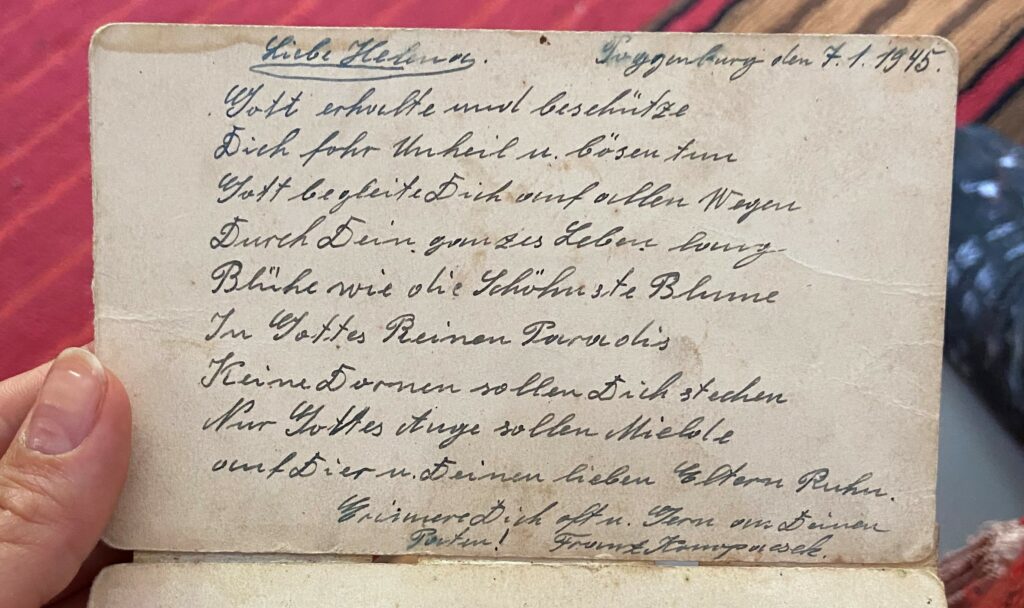 Liebe Helena.
Toggenburg den 7.1.1945.
Gott erhalte und beschütze
Dich fohr Unheil u. bösen tun
Gott begleite Dich auf allen Wegen
Durch Dein ganzes Leben lang
Blühe wie die Schöhnste Blume
In Gottes Reinen Paradis
Keine Dornen sollen Dich stechen
Nur Gottes Auge sollen Mielde
auf Dier u. Deinen lieben Eltern Ruhn.
Erinnere Dich oft u. Gern an Deinen
Paten! Franz